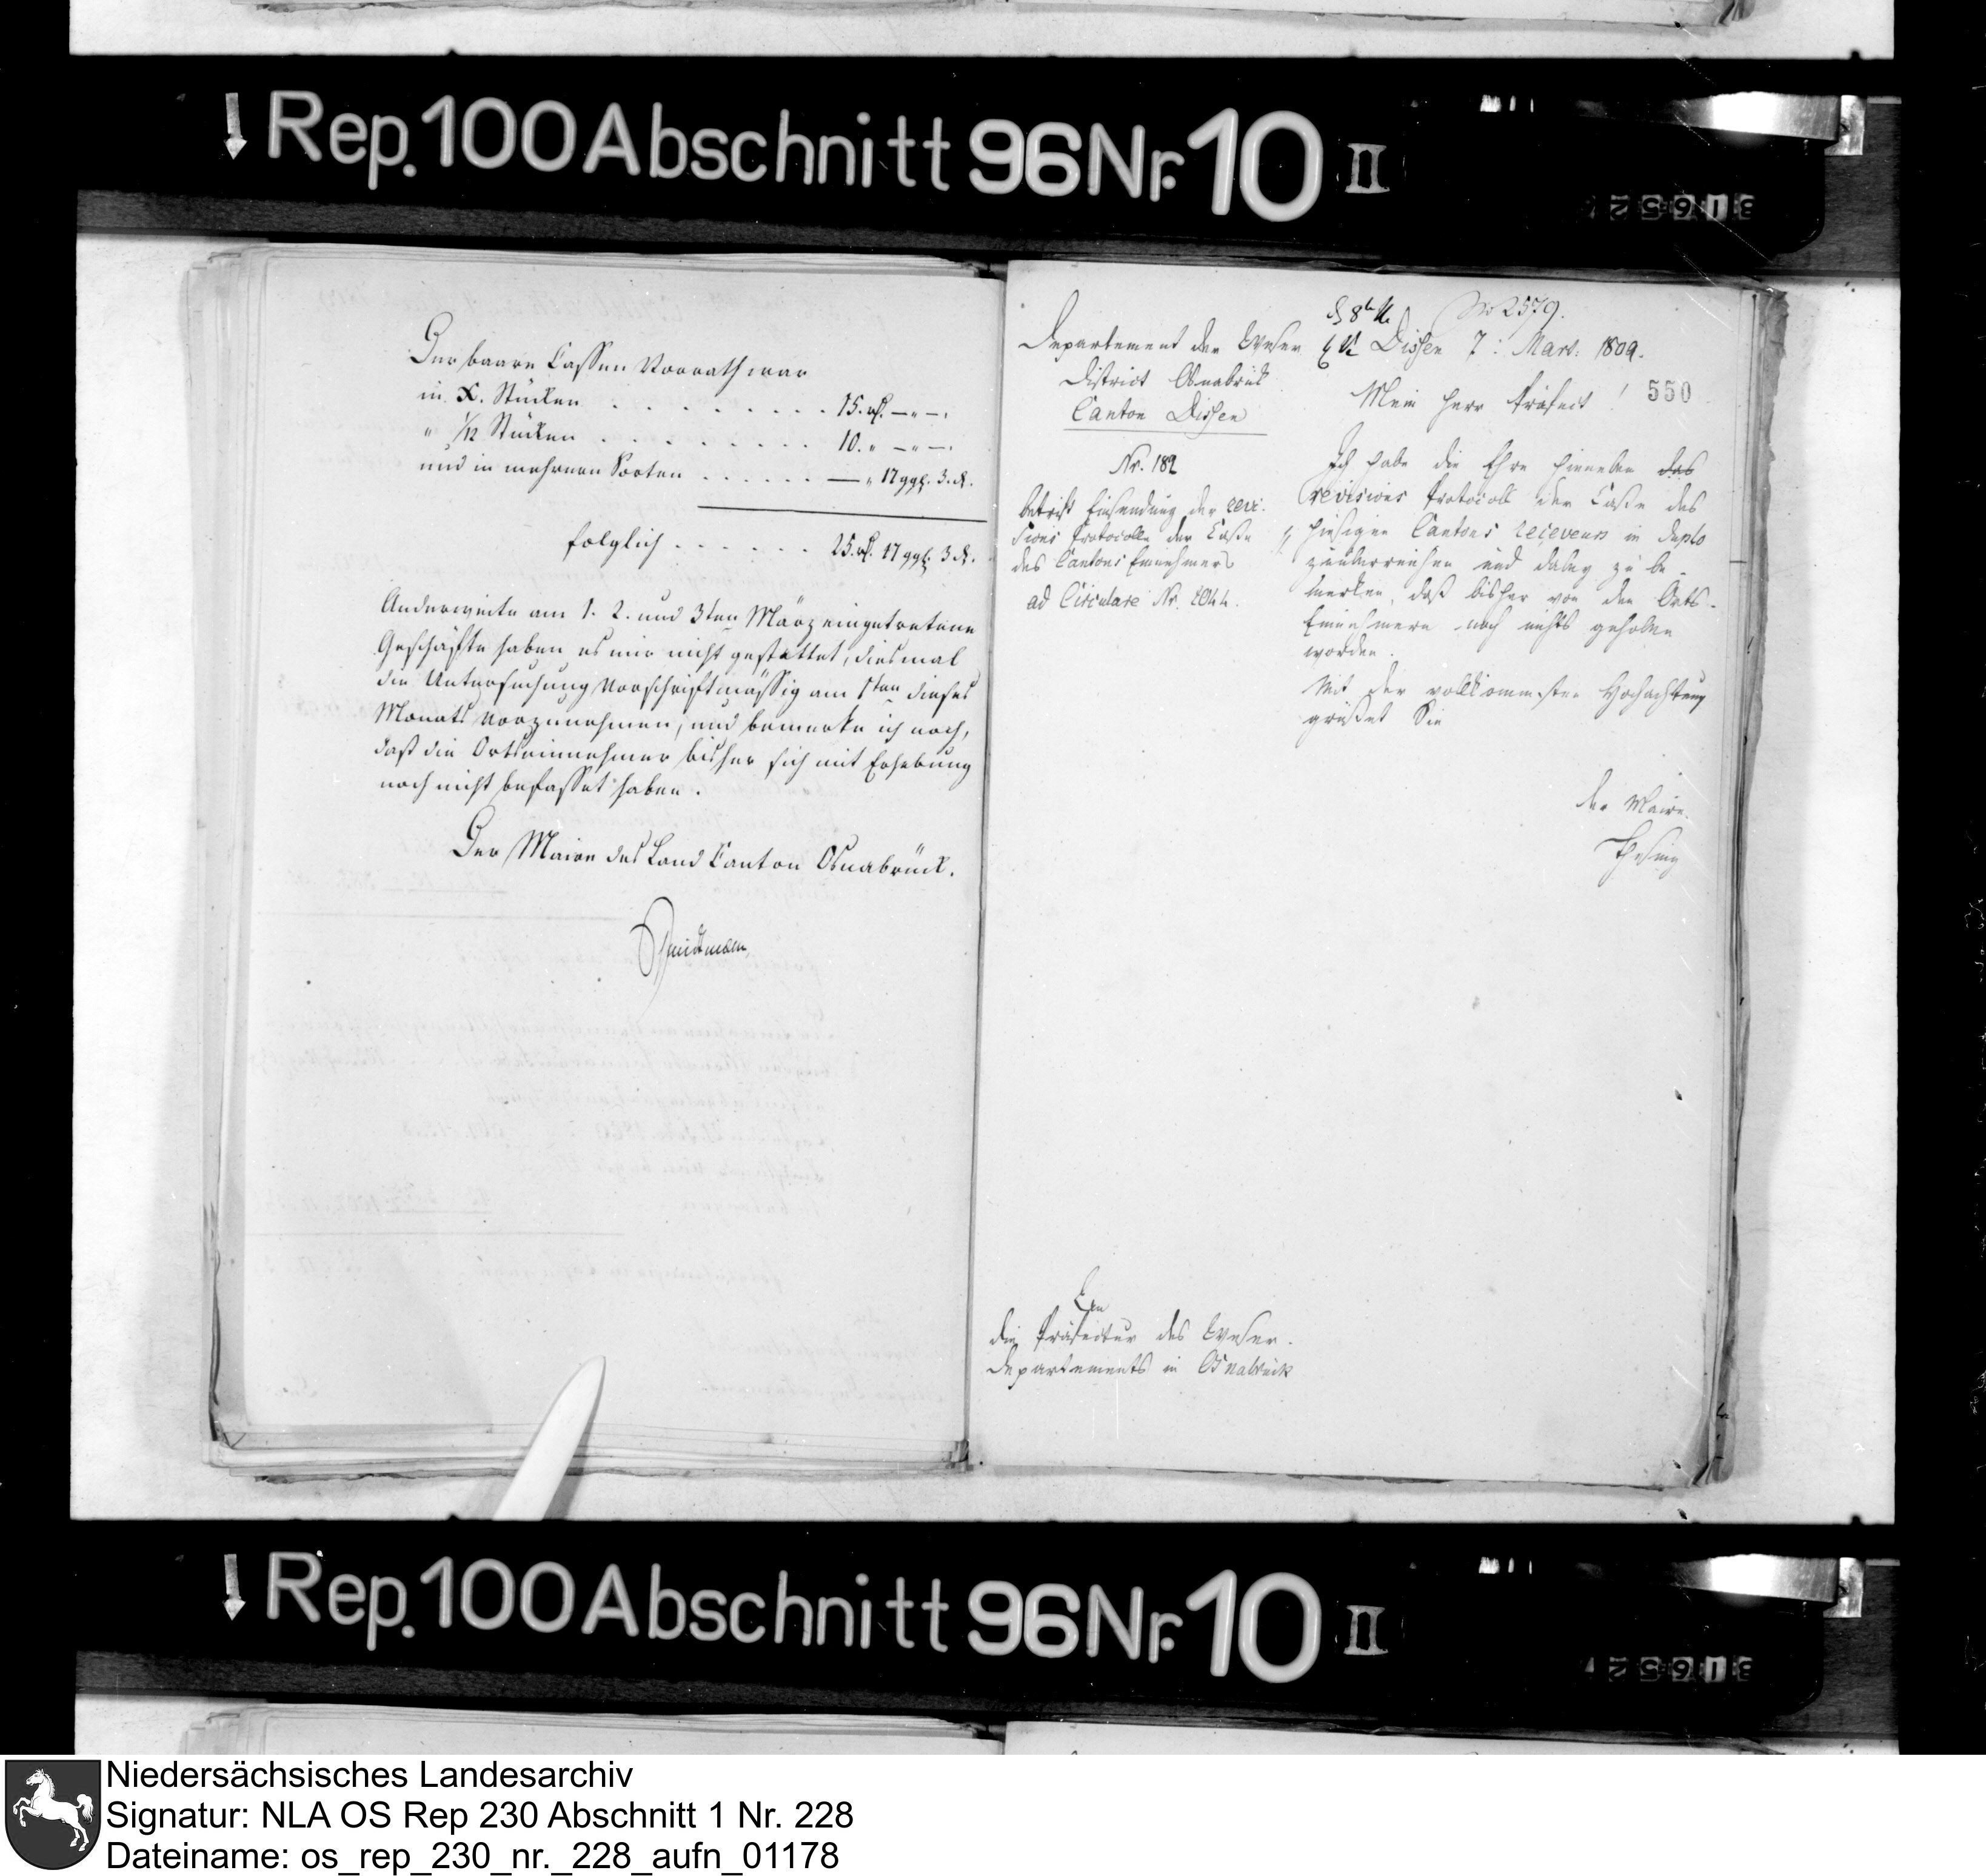 Rep. 100 Abschnitt 96 Nr. 10 II
Der baare Cassen Vorrath war
in X. Stücken . . . . . . . . . 15. rℓ. — „ — .
" 1/12 Stücken . . . . . . . . . 10. „ — „ — .
und in mehreren Sorten . . . . . . — „ 17 ggℓ. 3. ₰.
folglich . . . . . . 25. rℓ. 17 ggℓ. 3 ₰.
Anderweite am 1. 2. und 3ten März eingetretene
Geschäfte haben es mir nicht gestattet, diesmal
die Untersuchung Vorschriftmässig am 1ten dieses
Monats vorzunehmen, und bemerke ich noch,
daß die Ortseinnehmer bisher sich mit Erhebung
noch nicht befasset haben.
Der Maire des Land Canton Osnabrück.
No 2579.
Departement der Weser
District Osnabrük
Canton Dissen
Nr. 182
betrift Einsendung der revi:
sions Protocolle der Casse
des Cantons Einnehmers
ad Circulare Nr. 2044.
Dissen 7: Mart: 1809.
550
Mein Herr Präfect!
Ich habe die Ehre hierneben das
revisions Protocoll der Casse des
hiesigen Cantons receveurs in duplo
zu überreichen und dabey zu be-
merken, daß bisher von den Orts-
Einnehmern noch nichts gehoben
worden.
Mit der vollkommensten Hochachtung
grüßet Sie
der Maire
Thesing
An
die Präfectur des Weser-
Departements in Osnabrück
Rep. 100 Abschnitt 96 Nr. 10 II
Niedersächsisches Landesarchiv
Signatur: NLA OS Rep 230 Abschnitt 1 Nr. 228
Dateiname: os_rep_230_nr._228_aufn_01178